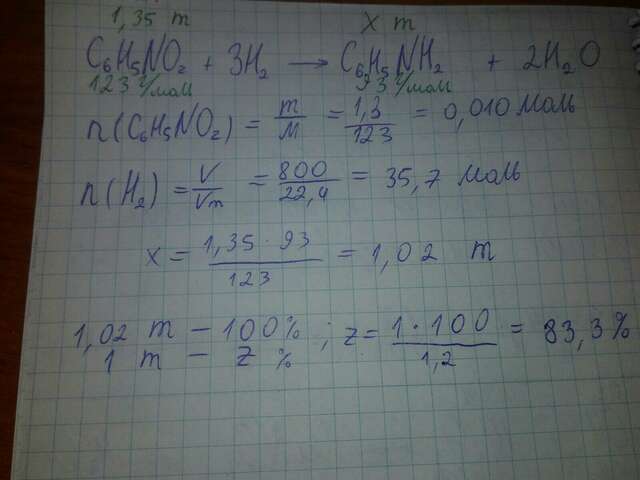 1,35 т x т
C₆H₅NO₂ + 3H₂ → C₆H₅NH₂ + 2H₂O
123 г/моль 93 г/моль
n(C₆H₅NO₂) = m/M = 1,3/123 = 0,010 моль
n(H₂) = V/Vm = 800/22,4 = 35,7 моль
x = 1,35 · 93/123 = 1,02 т
1,02 т – 100% ; z = 1 · 100/1,2 = 83,3%
1 т – z %